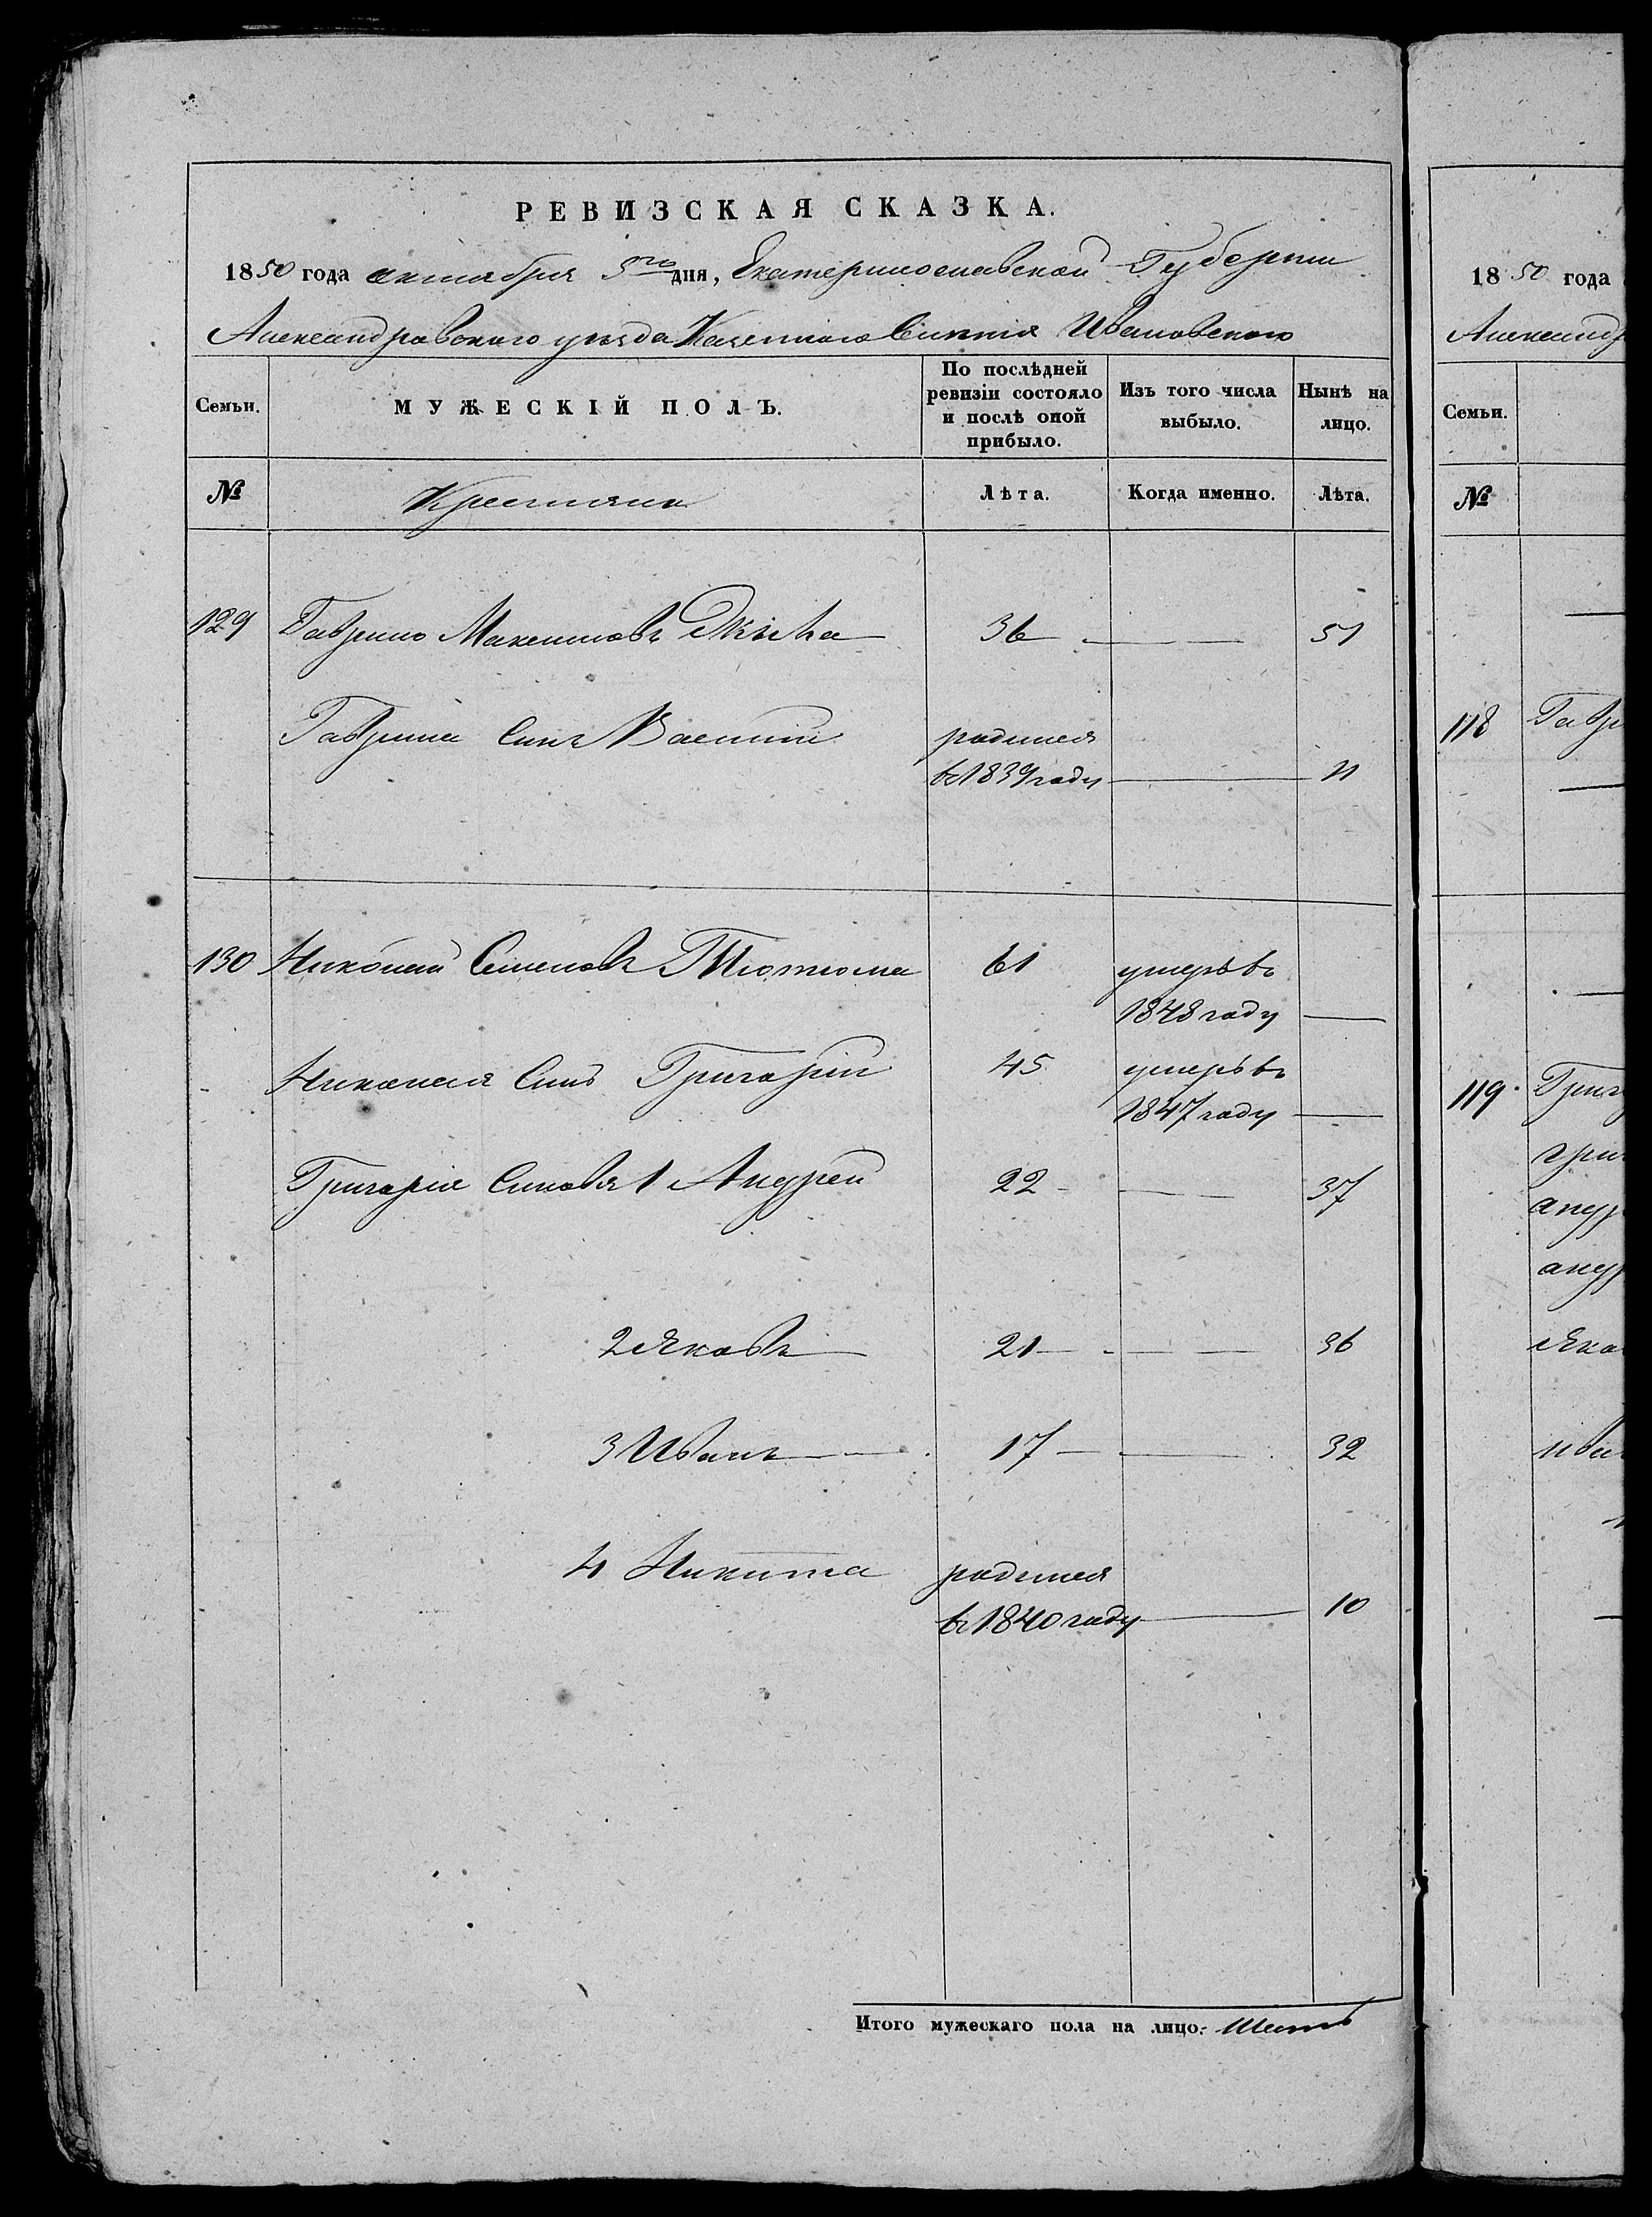 РЕВИЗСКАЯ СКАЗКА.
1850 года октября 5го дня, Екатеринославской Губернии
Александровского уезда Казенного Силения Ивановского
Семьи.
МУЖЕСКІЙ ПОЛЪ.
По послѣдней ревизіи состояло и послѣ оной прибыло.
Изъ того числа выбыло.
Нынѣ на лицо.
№
Крестяне
Лѣта.
Когда именно.
Лѣта.
129 Гаврило Максимовъ 36 51
Гаврила Синъ Василий родился
въ 1839 году 11
130 Николай Семеновъ Тютюма 61 умеръ въ
1848 году
Николая Синъ Григорий 45 умеръ въ
1847 году
Григорія Синовя 1 Андрей 22 37
2 Яковъ 21 36
3 Иванъ 17 32
4 Никита родился
въ 1840 году 10
Итого мужескаго пола на лицо: Шесть
1850 года
Александр
Семьи.
№
118 Гавр
119 Григ
гри
андр
андр
Яко
ива